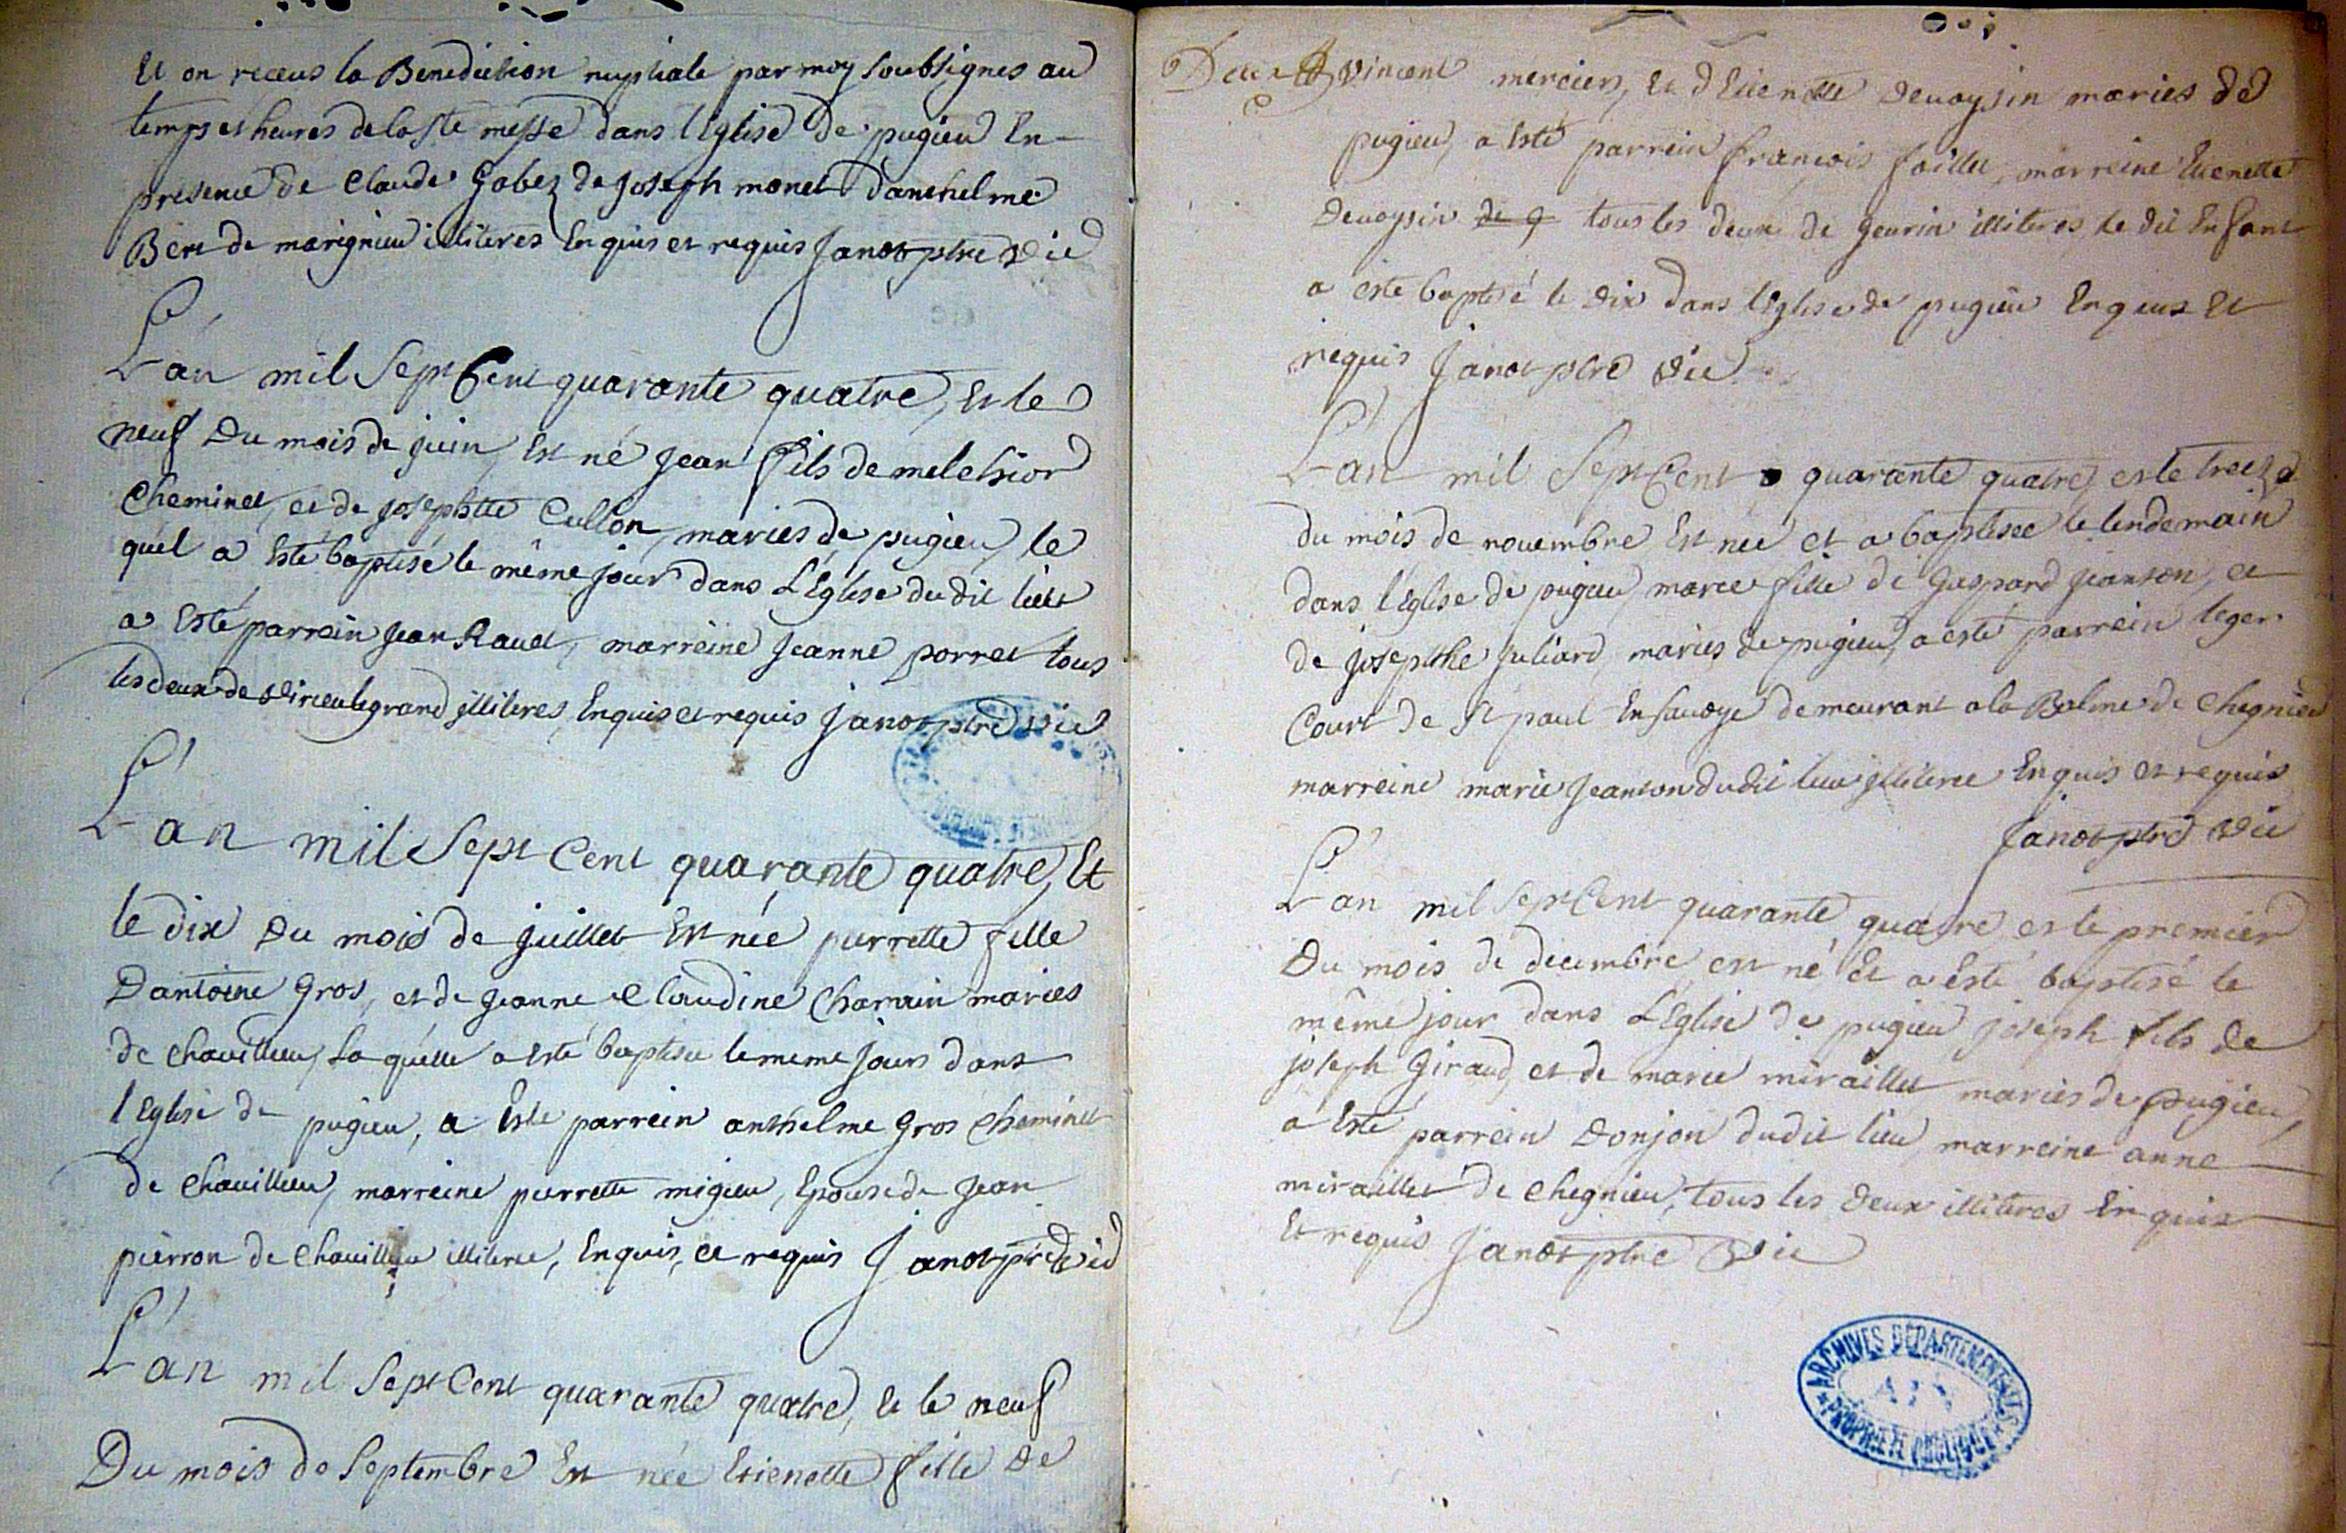 Et on receus la Benediction nuptiale par moy soubsignes au
temps et heures de la Ste messe dans l Eglise de pugieu En
presence de Claude Gobez de Joseph monet d'anthelme
Bere de marignieu illiteres Enquis et requis Janot ptre vic
L'an mil Sept Cent quarante quatre, Et le
neuf Du mois de juin, Est né Jean fils de melchior
Cheminet, et de josephtte Cullon, maries de pugieu, le
quel a Esté baptisé le même jour dans L'Eglise du dit lieu
a Esté parrein Jean Ravet, marreine Jeanne porret tous
les deux de virieu le grand illiteres, Enquis et requis Janot ptre vic
L'an mil Sept Cent quarante quatre, Et
le dix Du mois de juillet Est née pierrette fille
D'antoine Gros, et de Jeanne Claudine Charvin maries
de chavillieu, la quelle a esté baptisee le meme jours dans
l Eglise de pugieu, a Este parrein anthelme Gros Cheminet
de Chavillieu, marreine pierrette migieu, Epouse de Jean
pierron de Chavillieu illiteree, Enquis, et requis Janot ptre vic
L'an mil Sept Cent quarante quatre, Et le neuf
Du mois de Septembre Est née Etienette fille De
vincent mercier, Et d Etienette Devoysin maries de
pugieu, a Esté parrein francois faillet, marreine Etienette
Devoysin de g tous les deux de Geurin illiteres, le dit Enfant
a este baptisé le dix dans l'Eglise de pugieu Enqeus Et
requis Janot ptre vic
L'an mil Sept Cent quarante quatre, et le treize
du mois de novembre Est née et a baptisée le lendemain
dans l Eglise de pugieu, marie fille de Gaspard Jeanton, et
de josepthe Juliard, maries de pugieu, a esté parrein leger
Court de St paul En savoye demeurant a la Balme de Chegnieu
marreine marie Jeanton du dit lieu illiteree Enquis et requis
Janot ptre vic
L'an mil Sept Cent quarante quatre, et le premier
Du mois de decembre est né Et a Esté baptisé le
même jour dans L'Eglise de pugieu, joseph fils de
joseph Giraud, et de marie miraillet maries de pugieu,
a Esté parrein Donjon du dit lieu, marreine anne
miraillet de Chegnieu, tous les deux illiteres Enquis
Et requis Janot ptre vic
ARCHIVES DEPARTEMENTALES
AIN
PROPRIETE PUBLIQUE